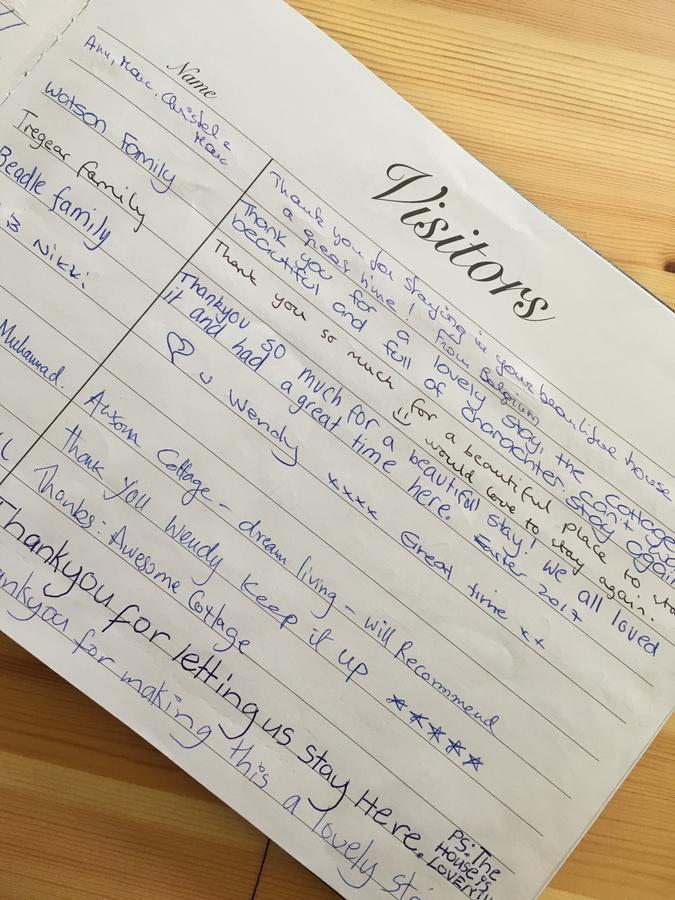 Name
Visitors
Ann, Marc, Christel &
Marc
Thank you for staying in your beautiful house
a great time! From Belgium
Watson Family
Thank you for a lovely stay, the cottage
beautiful and full of charachter. Can't
stay again
Tregear family
Thank you so much for a beautiful place to
:) would love to stay again.
Beadle family
Thankyou so much for a beautiful stay! We all loved
it and had a great time here. Easter 2017
B Nikki
♡ u Wendy xxxx Great time xx
Muhammad.
Awsom Cottage - dream living - will Recommend
Thank you Wendy keep it up *****
Thanks: Awesome Cottage
Thankyou for letting us stay Here.
PS: The
House is
LOVELY!!
for making this a lovely